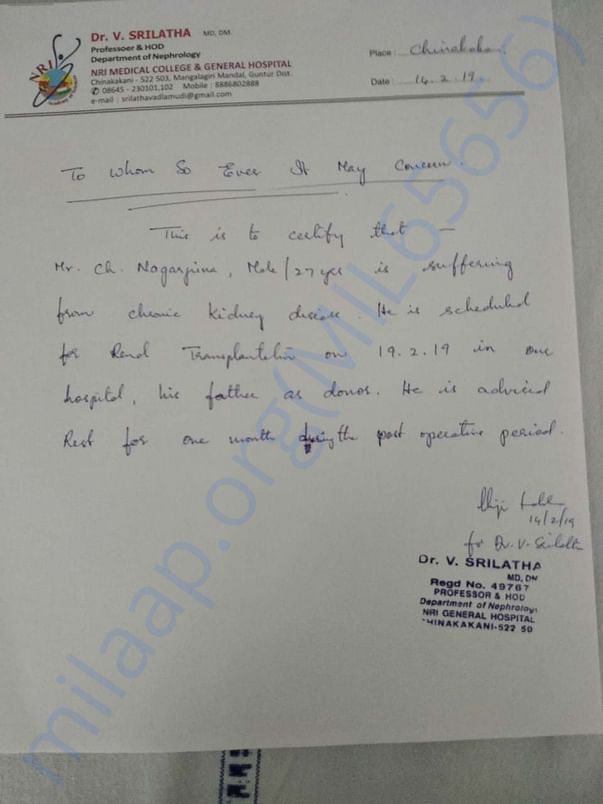 Dr. V. SRILATHA MD, DM.
Professoer & HOD
Department of Nephrology
NRI MEDICAL COLLEGE & GENERAL HOSPITAL
Chinakakani - 522 503, Mangalagiri Mandal, Guntur Dist.
✆ 08645 - 230101,102 Mobile : 8886802888
e-mail : srilathavadlamudi@gmail.com
NRI
Place : Chinakakani
Date : 14.2.19
To Whom So Ever It May Concern.
This is to certify that —
Mr. Ch. Nagarjuna, Male/27 yrs is suffering
from chronic kidney disease. He is scheduled
for Renal Transplantation on 19.2.19 in our
hospital, his father as donor. He is adviced
Rest for one month during the post operative period.
14/2/19
for Dr. V. Srilatha
Dr. V. SRILATHA
MD, DM
Regd No. 49767
PROFESSOR & HOD
Department of Nephrology
NRI GENERAL HOSPITAL
CHINAKAKANI-522 50
milaap.org(MIL65656)